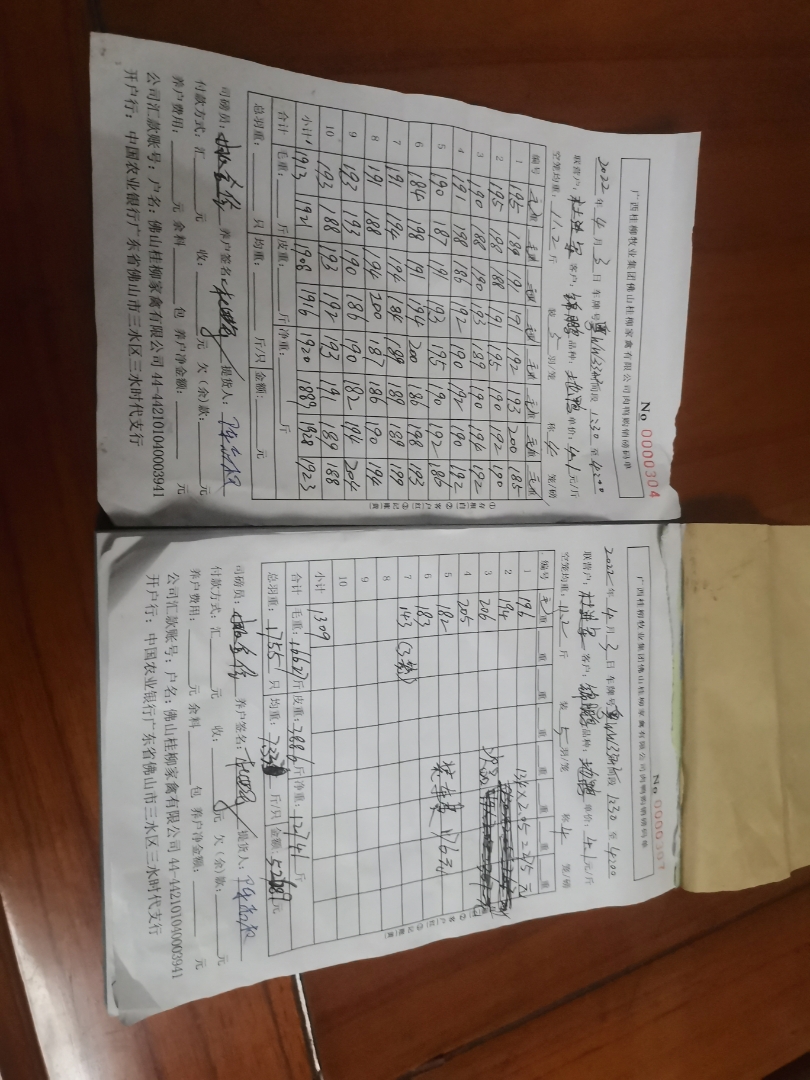 广西桂柳牧业集团佛山桂柳家禽有限公司肉鸭购销磅码单
No 0000304
2022年4月3日 车牌号 阶段 1230 至 4200
联营户: 客户:锦鹏 品种: 单价:4.1元/斤
空笼均重:11.2斤 装5只/笼 称4笼/磅
编号 毛重 毛重 毛重 毛重 毛重 毛重 毛重 毛重
1 195 189 191 191 192 193 200 185
2 195 198 188 191 195 190 192 190
3 190 188 190 193 189 190 194 192
4 191 198 186 192 190 192 190 192
5 190 187 191 193 195 190 192 186
6 184 198 191 194 200 186 198 193
7 191 194 194 184 189 189 189 199
8 191 188 194 200 187 186 190 194
9 193 193 190 186 190 182 194 204
10 193 188 193 192 193 191 189 188
小计 1913 1921 1908 1916 1920 1889 1928 1923
合计 毛重: 斤 皮重: 斤 净重: 斤
总羽重: 只 均重: 斤/只 金额: 元
司磅员: 养户签名: 提货人:
付款方式:汇 元 收: 元 欠(余)款: 元
养户费用: 元 余料 包 养户净金额: 元
公司汇款账号:户名:佛山桂柳家禽有限公司 44-442101040003941
开户行:中国农业银行广东省佛山市三水区三水时代支行
广西桂柳牧业集团佛山桂柳家禽有限公司肉鸭购销磅码单
No 0000307
2022年4月3日 车牌号 阶段 1230 至 4200
联营户: 客户:锦鹏 品种: 单价:4.1元/斤
空笼均重:11.2斤 装5只/笼 称4笼/磅
编号 毛重 重 重 重 重 重 重 重
1 196
2 194
3 206
4 205
5 182
6 183
7 143(3笼)
8
9
10
小计 1309
合计 毛重:16627斤 皮重:3886斤 净重:12741斤
总羽重:1755只 均重: 斤/只 金额: 元
司磅员: 养户签名: 提货人:
付款方式:汇 元 收: 元 欠(余)款: 元
养户费用: 元 余料 包 养户净金额: 元
公司汇款账号:户名:佛山桂柳家禽有限公司 44-442101040003941
开户行:中国农业银行广东省佛山市三水区三水时代支行